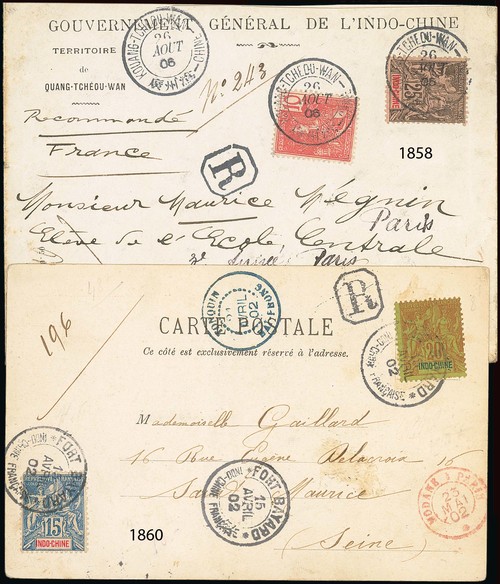 GOUVERNEMENT GÉNÉRAL DE L'INDO-CHINE
TERRITOIRE
de
QUANG-TCHÉOU-WAN
KOUANG-TCHEOU-WAN
CHINE
26
AOUT
06
KOUANG-TCHEOU-WAN
26
AOUT
06
10
TCHEOU-WAN
26
06
25
INDO-CHINE
No 243
Recommandé
France
R
1858
Monsieur Maurice Mégnin
Paris
Elève de l'Ecole Centrale
Paris
TONQUIN
AVRIL
02
R
CARTE POSTALE
Ce côté est exclusivement réservé à l'adresse.
196
20
INDO-CHINE
02
INDO-CHINE FRANÇAISE
Mademoiselle Gaillard
16 Rue Eugène Delacroix 16
Saint Maurice
Seine
FORT BAYARD
15
AVRIL
02
INDO-CHINE FRANÇAISE
15
INDO-CHINE
FORT BAYARD
15
AVRIL
02
INDO-CHINE FRANÇAISE
MODANE A PARIS
23
MAI
02
1860